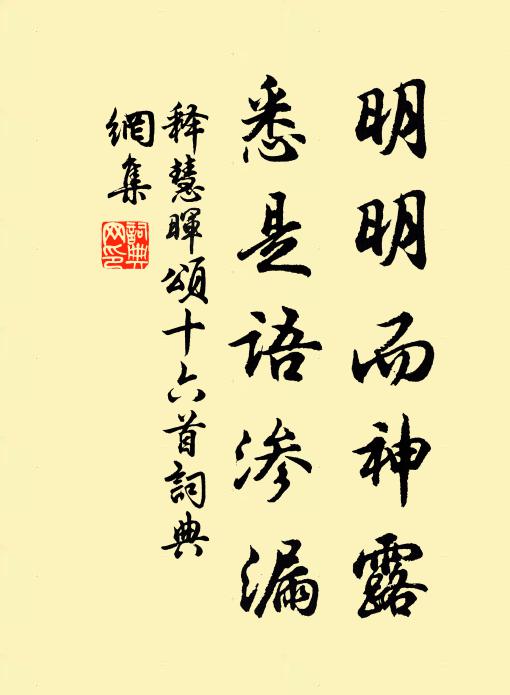 明明而神露
悉是語渗漏
释慧暉頌十六首詞典
網集
詞典
网印